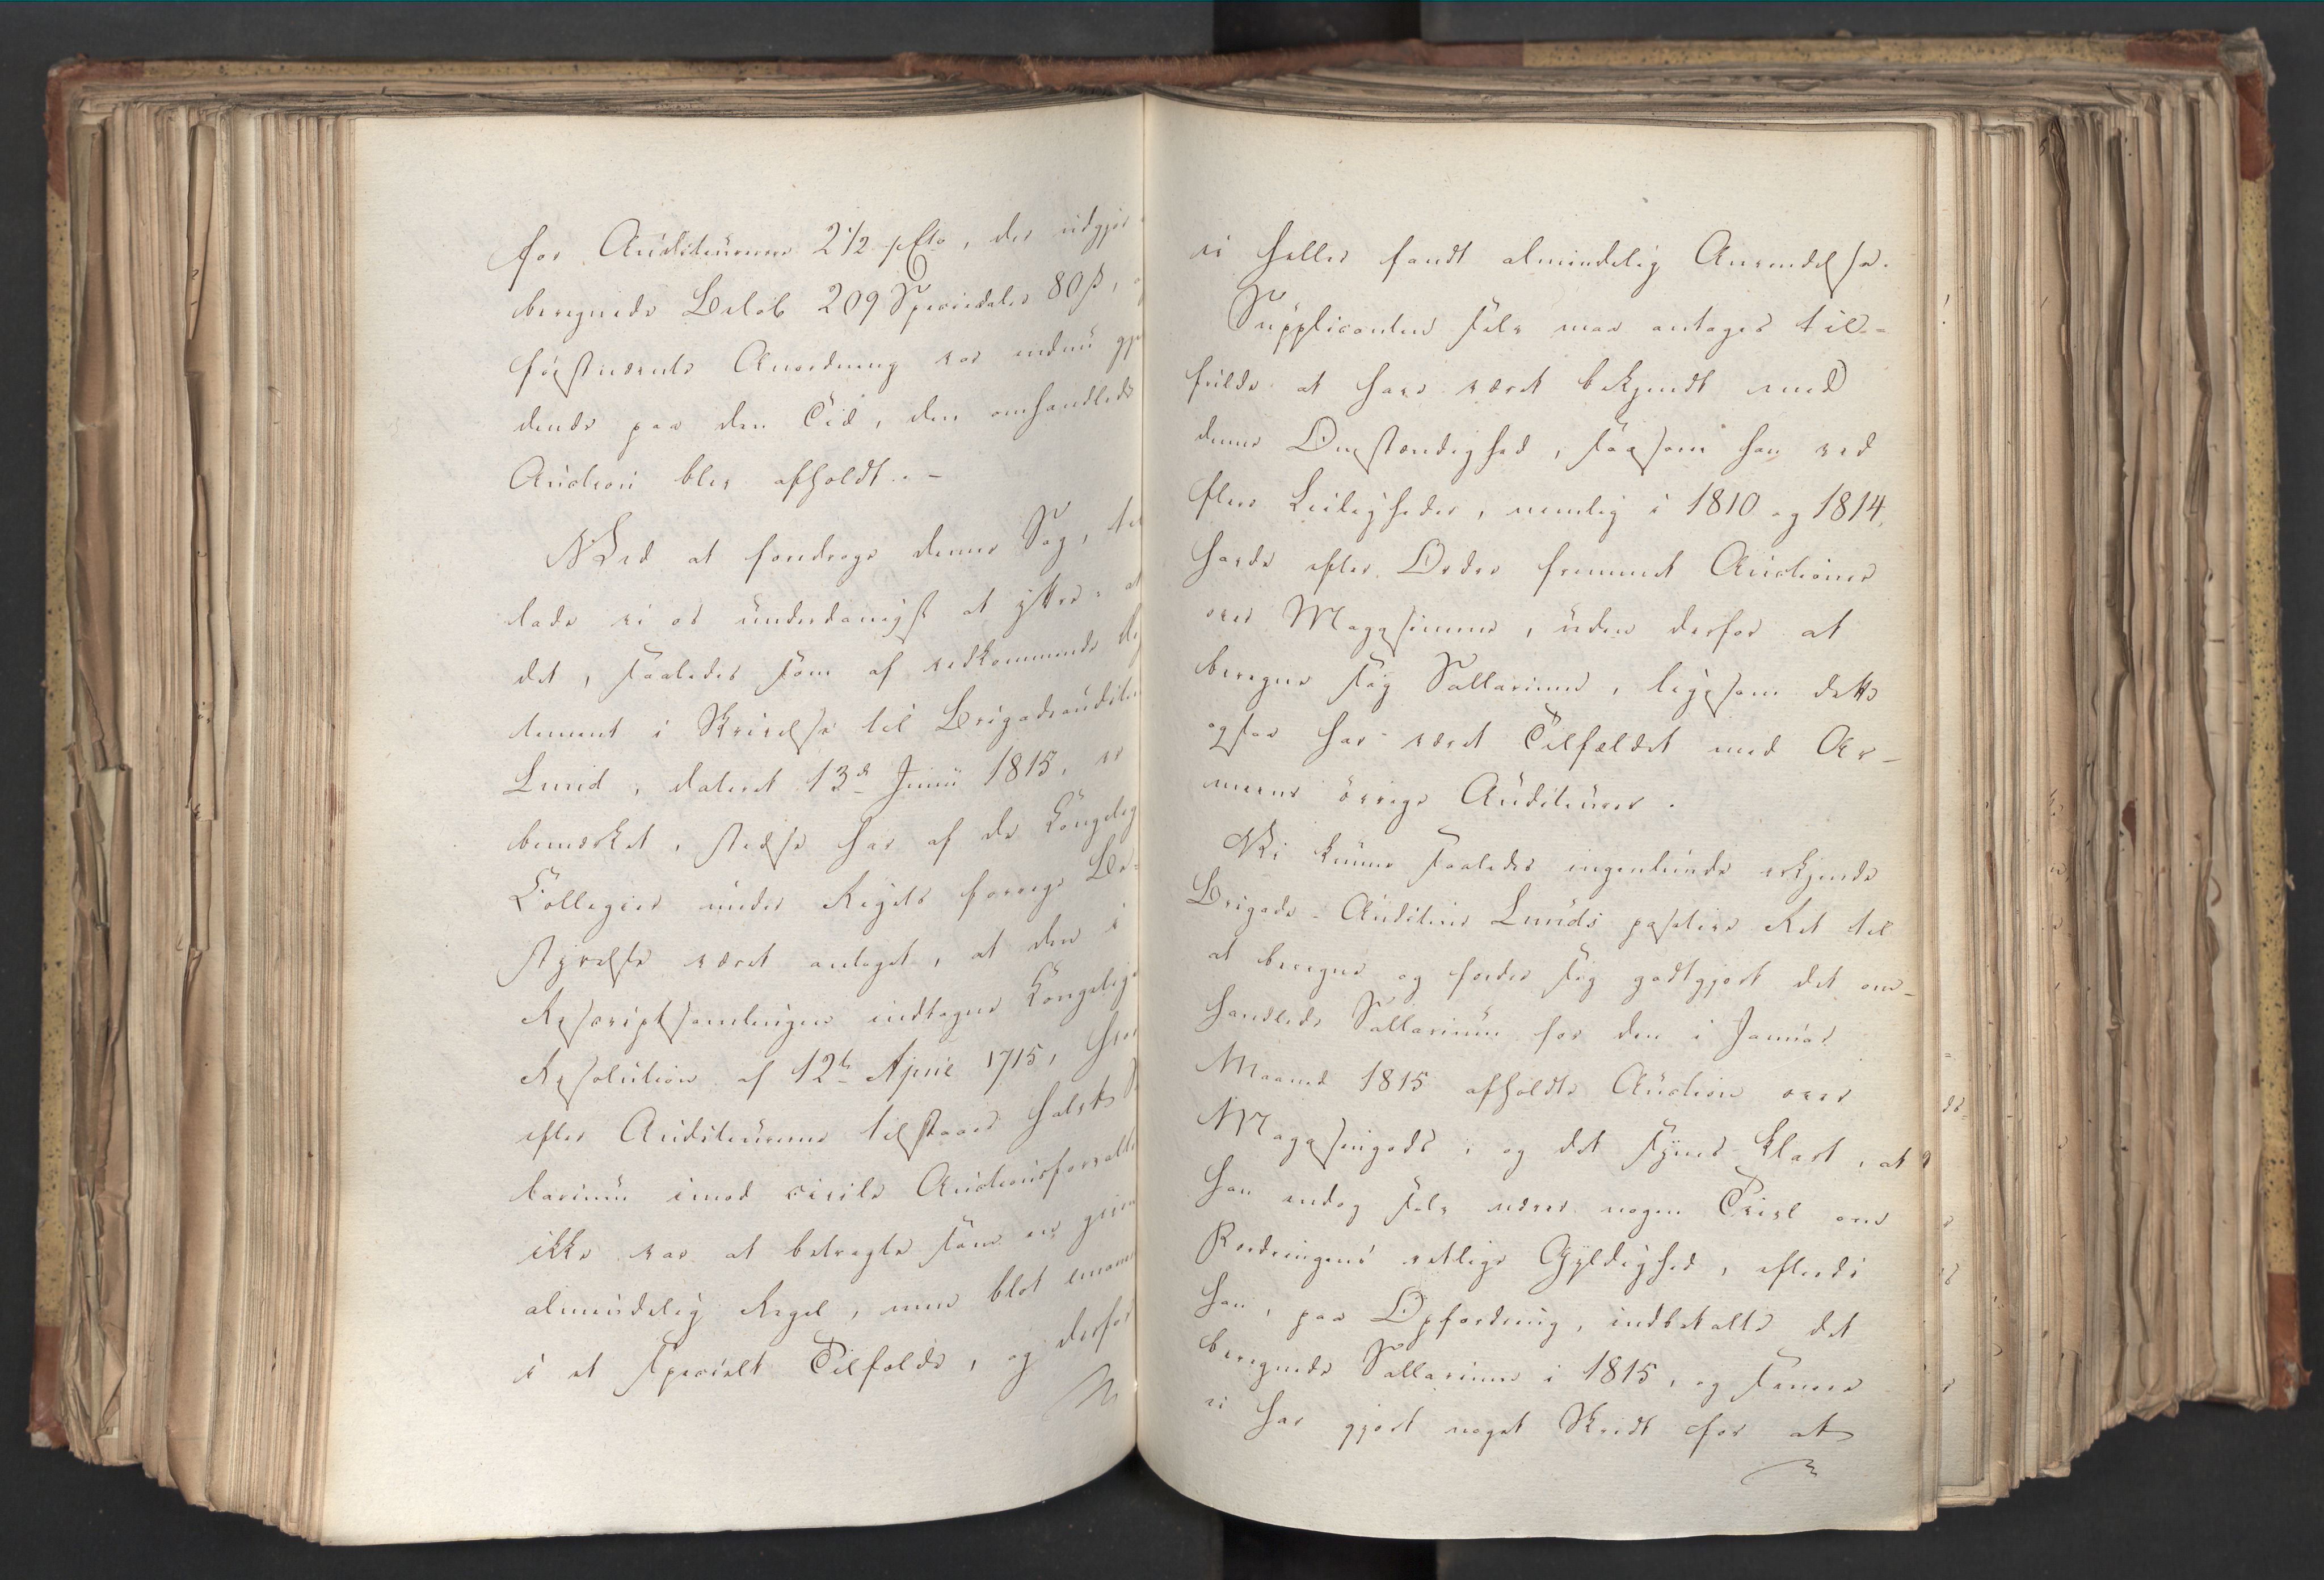 for Auditeurerne 2 1/2 pCto, der udgjør
beregnede Beløb 209 Speciedaler 80 ß,
førstnævnte Anordning var endnu gje
dende paa den Tid, den omhandlede
Auction blev afholdt. –
Ved at foredrage denne Sag, til
lade vi os underdanigst at yttre: at
det, saaledes som af vedkommende
tement i Skrivelse til Brigadeauditeu
Lund, dateret 13d Junii 1815, er
bemærket, stedse har af de Kongelig
Collegier under Rigets forrige Be-
styrelse været antaget, at den i
Rescriptsamlingen indtagne Kongelige
Resolution af 12te April 1715, hvor
efter Auditeurerne tilstaaes halvt
larium imod civile Auctionsforvalte
ikke var at betragte som en
almindelig Regel, men blot emaner
i et specielt Tilfælde, og derfor
ei heller fandt almindelig Anvendelse.
Supplicanten selv maa antages til-
fulde at have været bekjendt med
denne Omstændighed, saasom han ved
flere Leiligheder, nemlig i 1810 og 1814,
havde efter Ordre fremmet Auctioner
over Magasinerne, uden derfor at
beregne sig Sallarium, ligesom dette
ogsaa har været Tilfældet med Ar-
meens øvrige Auditeurer.
Vi kunne saaledes ingenlunde erkjende
Brigade-Auditeur Lunds paastaaede Ret til
at beregne og fordre sig godtgjort det om-
handlede Sallarium for den i Januar
Maaned 1815 afholdte Auction over
Magasingods; og det synes klart, at
han endog selv nærer nogen Tvivl om
Fordringens retlige Gyldighed, efterdi
han, paa Opfordring, indbetalte det
beregnede Sallarium i 1815, og senere
ei har gjort noget Skridt for at